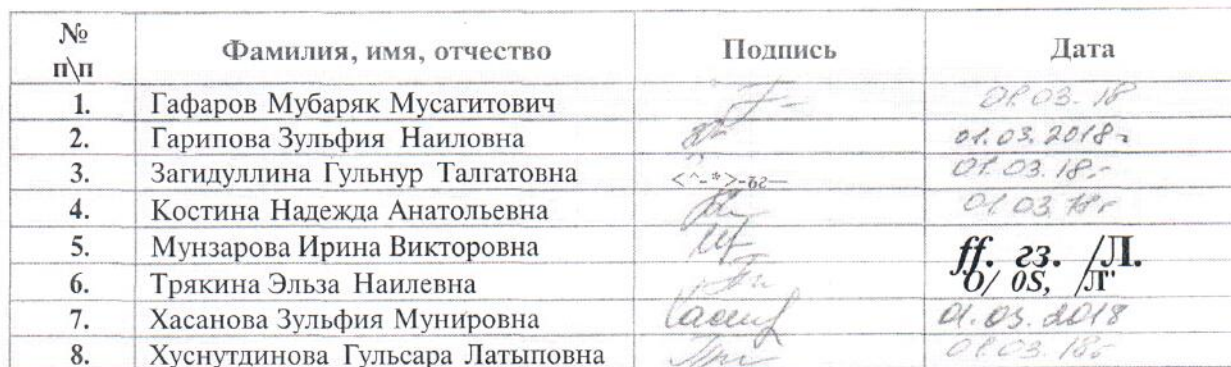 № п\п Фамилия, имя, отчество Подпись Дата
1. Гафаров Мубаряк Мусагитович 01.03.18
2. Гарипова Зульфия Наиловна 01.03.2018г
3. Загидуллина Гульнур Талгатовна <^-*>-ъг— 01.03.18г
4. Костина Надежда Анатольевна 01.03.18г
5. Мунзарова Ирина Викторовна ff. гз. /Л.
6. Трякина Эльза Наилевна O/ 0S, /Л"
7. Хасанова Зульфия Мунировна 01.03.2018
8. Хуснутдинова Гульсара Латыповна 01.03.18г